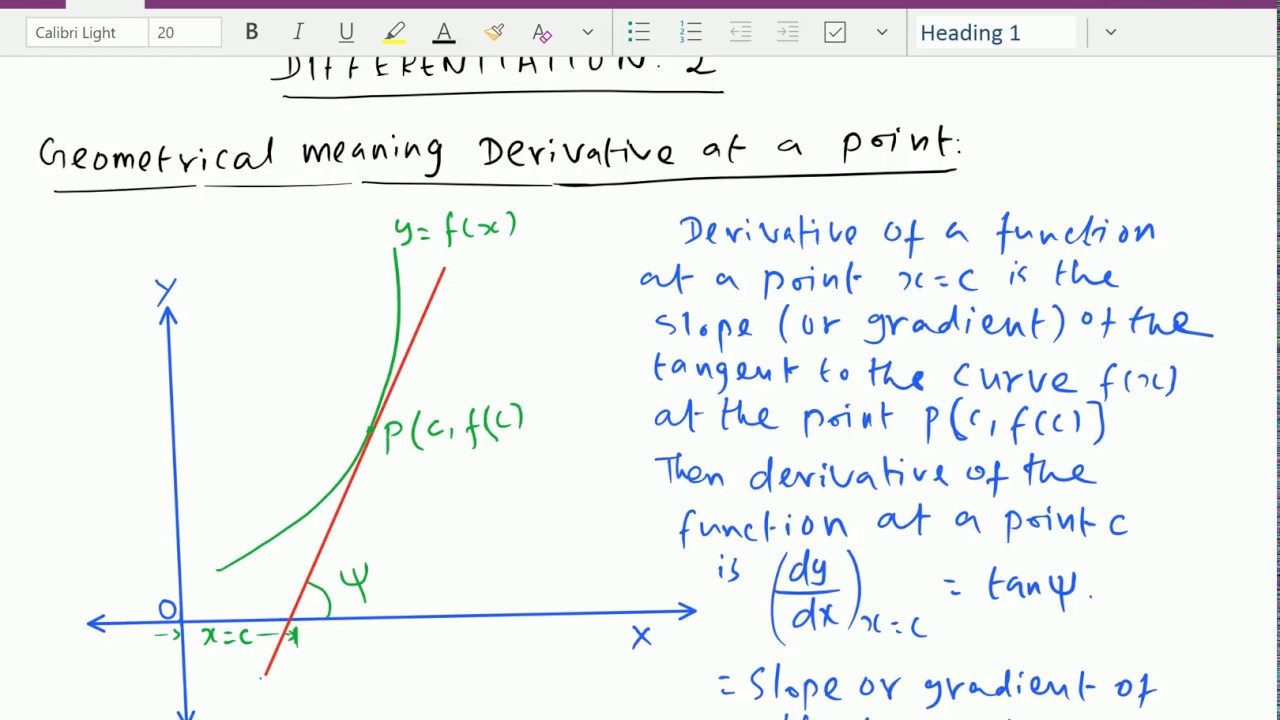 Calibri Light 20 B I U A A Heading 1
DIFFERENTIATION. 2
Geometrical meaning Derivative at a point:
y = f(x)
Y
P(c, f(c)
ψ
O
x=c
X
Derivative of a function
at a point x=c is the
slope (or gradient) of the
tangent to the curve f(x)
at the point P[c, f(c)]
Then derivative of the
function at a point c
is (dy/dx)x=c = tanψ.
= slope or gradient of